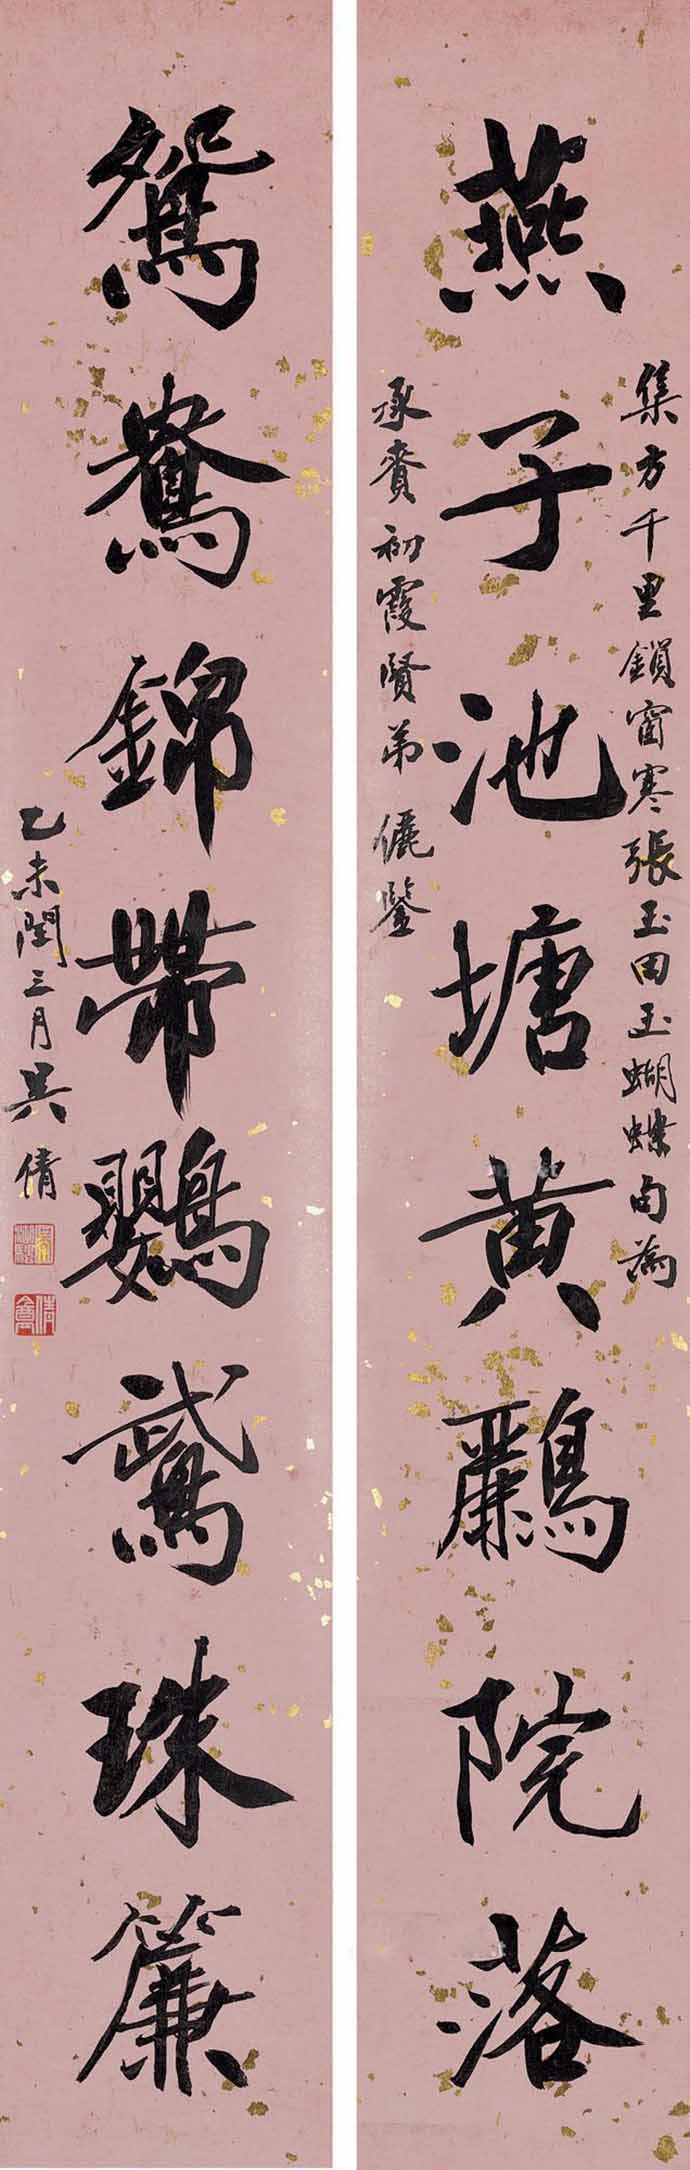 集方千里鎖窗寒張玉田玉蝴蝶句為
燕子池塘黄鸝院落
承賚初霞賢弟儷鑒
鴛鴦錦帶鸚鵡珠簾
乙未閏三月吳倩
倩盦